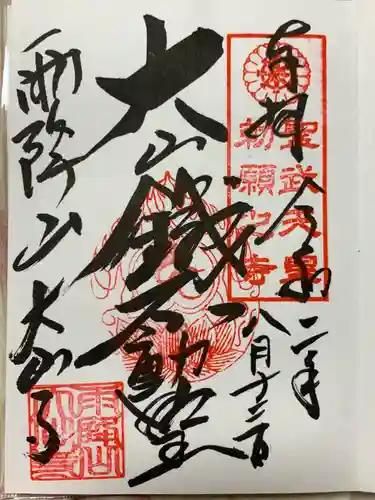 奉拝 令和二年
八月十三日
聖武天皇
勅願寺
大山鐵不動尊
雨降山大山寺
雨降山
大山寺